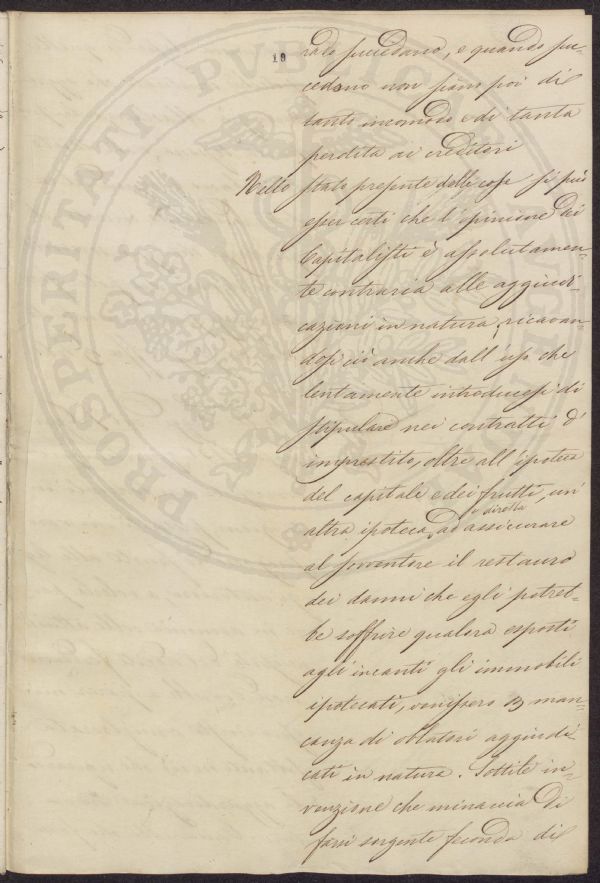 19
rado succedano, e quando suc-
cedano non siano poi di
tanto incomodo e di tanta
perdita ai creditori
Nello stato presente delle cose si può
esser certi che l'opinione dei
Capitalisti è assolutamen-
te contraria alle aggiudi-
cazioni in natura, ricavan-
dosi ciò anche dall'uso che
lentamente introducesi di
stipulare nei contratti d'
imprestito, oltre all'ipoteca
del capitale e dei frutti, un'
altra ipoteca, diretta ad assicurare
al sovventore il restauro
dei danni che egli potreb-
be soffrire qualora esposti
agli incanti gli immobili
ipotecati, venissero man-
canza di oblatori aggiudi
cati in natura. Sottile in-
venzione che minaccia di
farsi sorgente feconda di
PROSPERITATI PUBLICAE